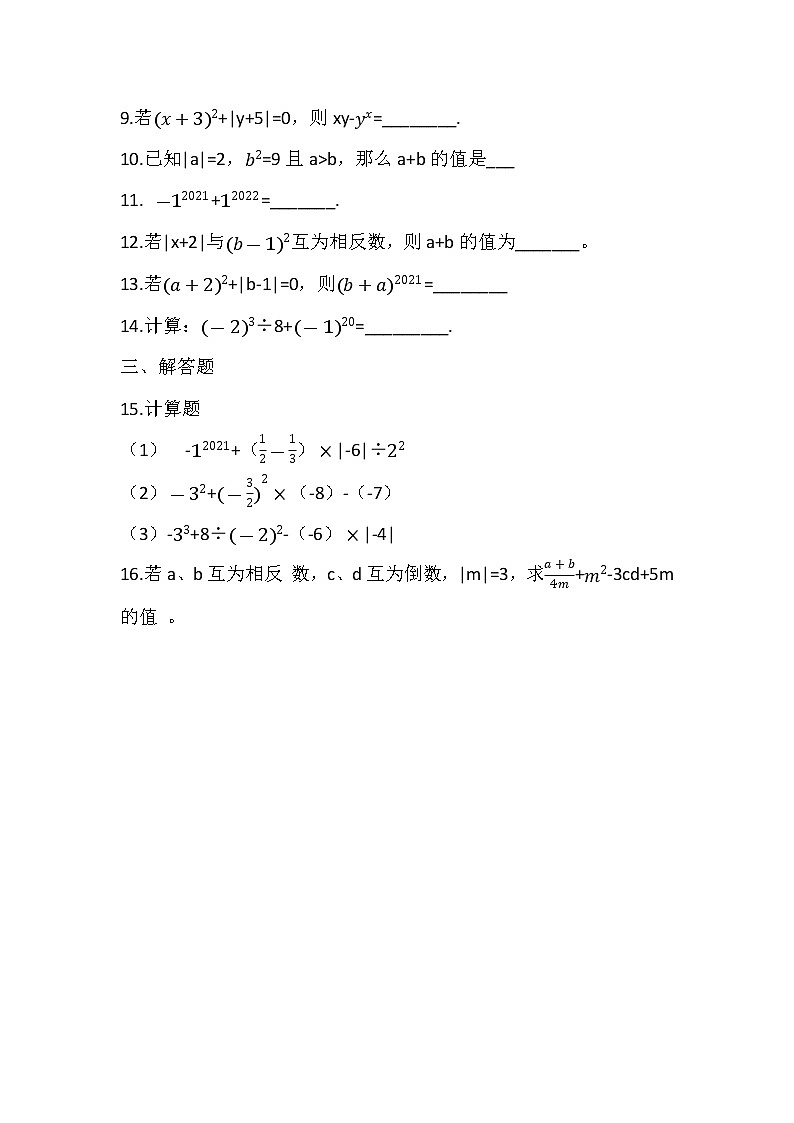 9.若$(x+3)^2$+|y+5|=0，则 xy-$y^x$=________.
10.已知|a|=2，$b^2$=9 且 a>b，那么 a+b 的值是___
11. $-1^{2021}$+$1^{2022}$=_______.
12.若|x+2|与$(b-1)^2$互为相反数，则 a+b 的值为_______。
13.若$(a+2)^2$+|b-1|=0，则$(b+a)^{2021}$=________
14.计算：$(-2)^3$÷8+$(-1)^{20}$=_________.
三、解答题
15.计算题
（1） -$1^{2021}$+（$\frac{1}{2}-\frac{1}{3}$）×|-6|÷$2^2$
（2）$-3^2$+$(-\frac{3}{2})^2$×（-8）-（-7）
（3）-$3^3$+8÷$(-2)^2$-（-6）×|-4|
16.若 a、b 互为相反 数，c、d 互为倒数，|m|=3，求$\frac{a+b}{4m}$+$m^2$-3cd+5m
的值 。